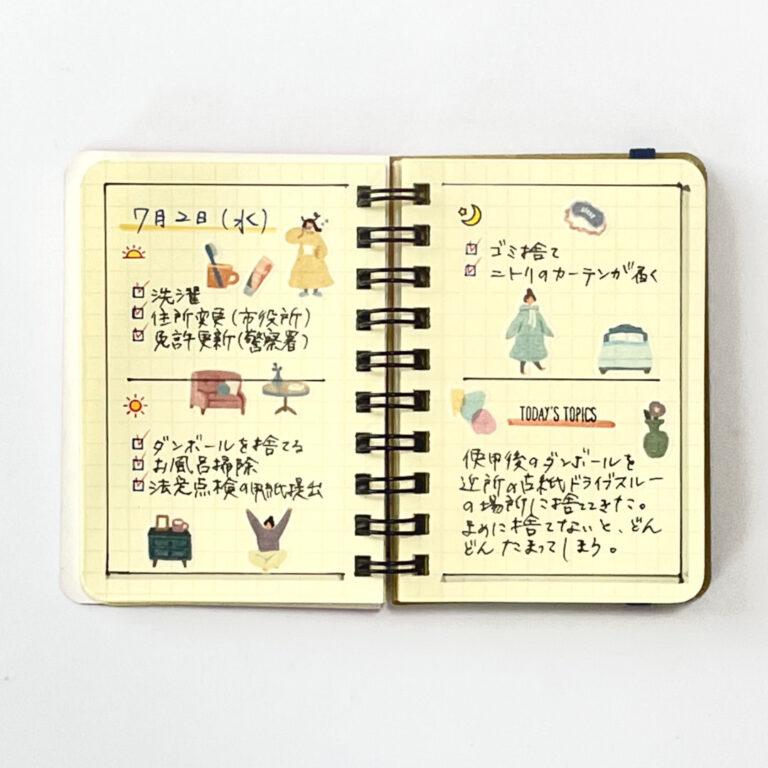 7月2日(水)
洗濯
住所変更(市役所)
免許更新(警察署)
ダンボールを捨てる
お風呂掃除
法定点検の用紙提出
ゴミ捨て
ニトリのカーテンが届く
TODAY'S TOPICS
使用後のダンボールを
近所の古紙ドライブスルー
の場所に捨ててきた。
まめに捨てないと、どん
どんたまってしまう。